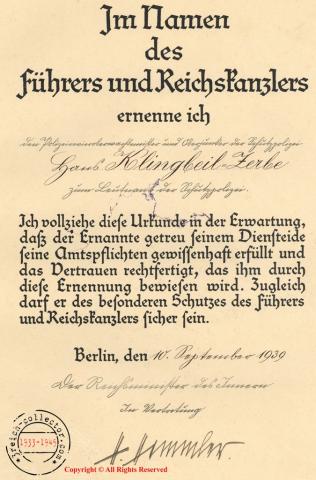 Im Namen
des
Führers und Reichskanzlers
ernenne ich
den Polizeioberwachtmeister und Oberjunker der Schutzpolizei
Hans Klingbeil-Zerbe
zum Leutnant der Schutzpolizei.
Ich vollziehe diese Urkunde in der Erwartung,
daß der Ernannte getreu seinem Diensteide
seine Amtspflichten gewissenhaft erfüllt und
das Vertrauen rechtfertigt, das ihm durch
diese Ernennung bewiesen wird. Zugleich
darf er des besonderen Schutzes des Führers
und Reichskanzlers sicher sein.
Berlin, den 10. September 1939
Der Reichsminister des Innern
In Vertretung
H. Himmler
3reich-collector.com
1933-1945
Copyright © All Rights Reserved